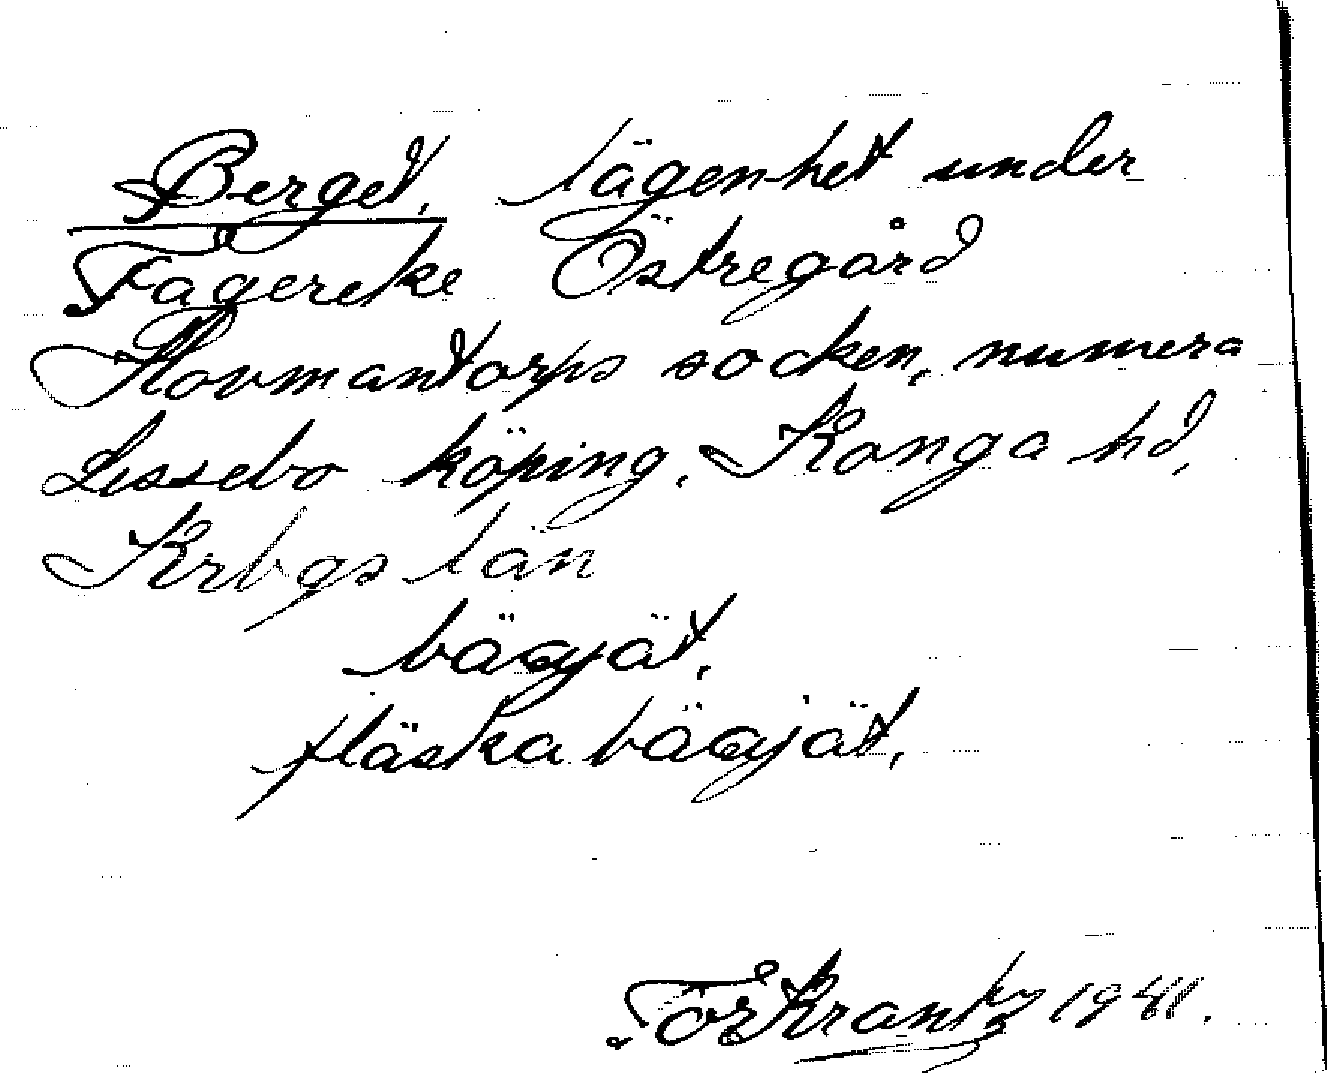 Berget, lägenhet under
Fagereke Östregård
Hovmantorps socken, numera
Lessebo köping. Konga hd,
Krbgs län
bäǥjät,
fläskabäǥjät,
Krantz 1941.